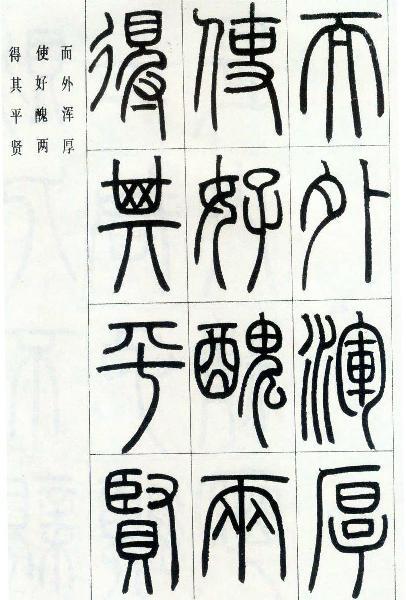 而外渾厚
使好醜兩
得其平賢
而外浑厚
使好醜两
得其平贤